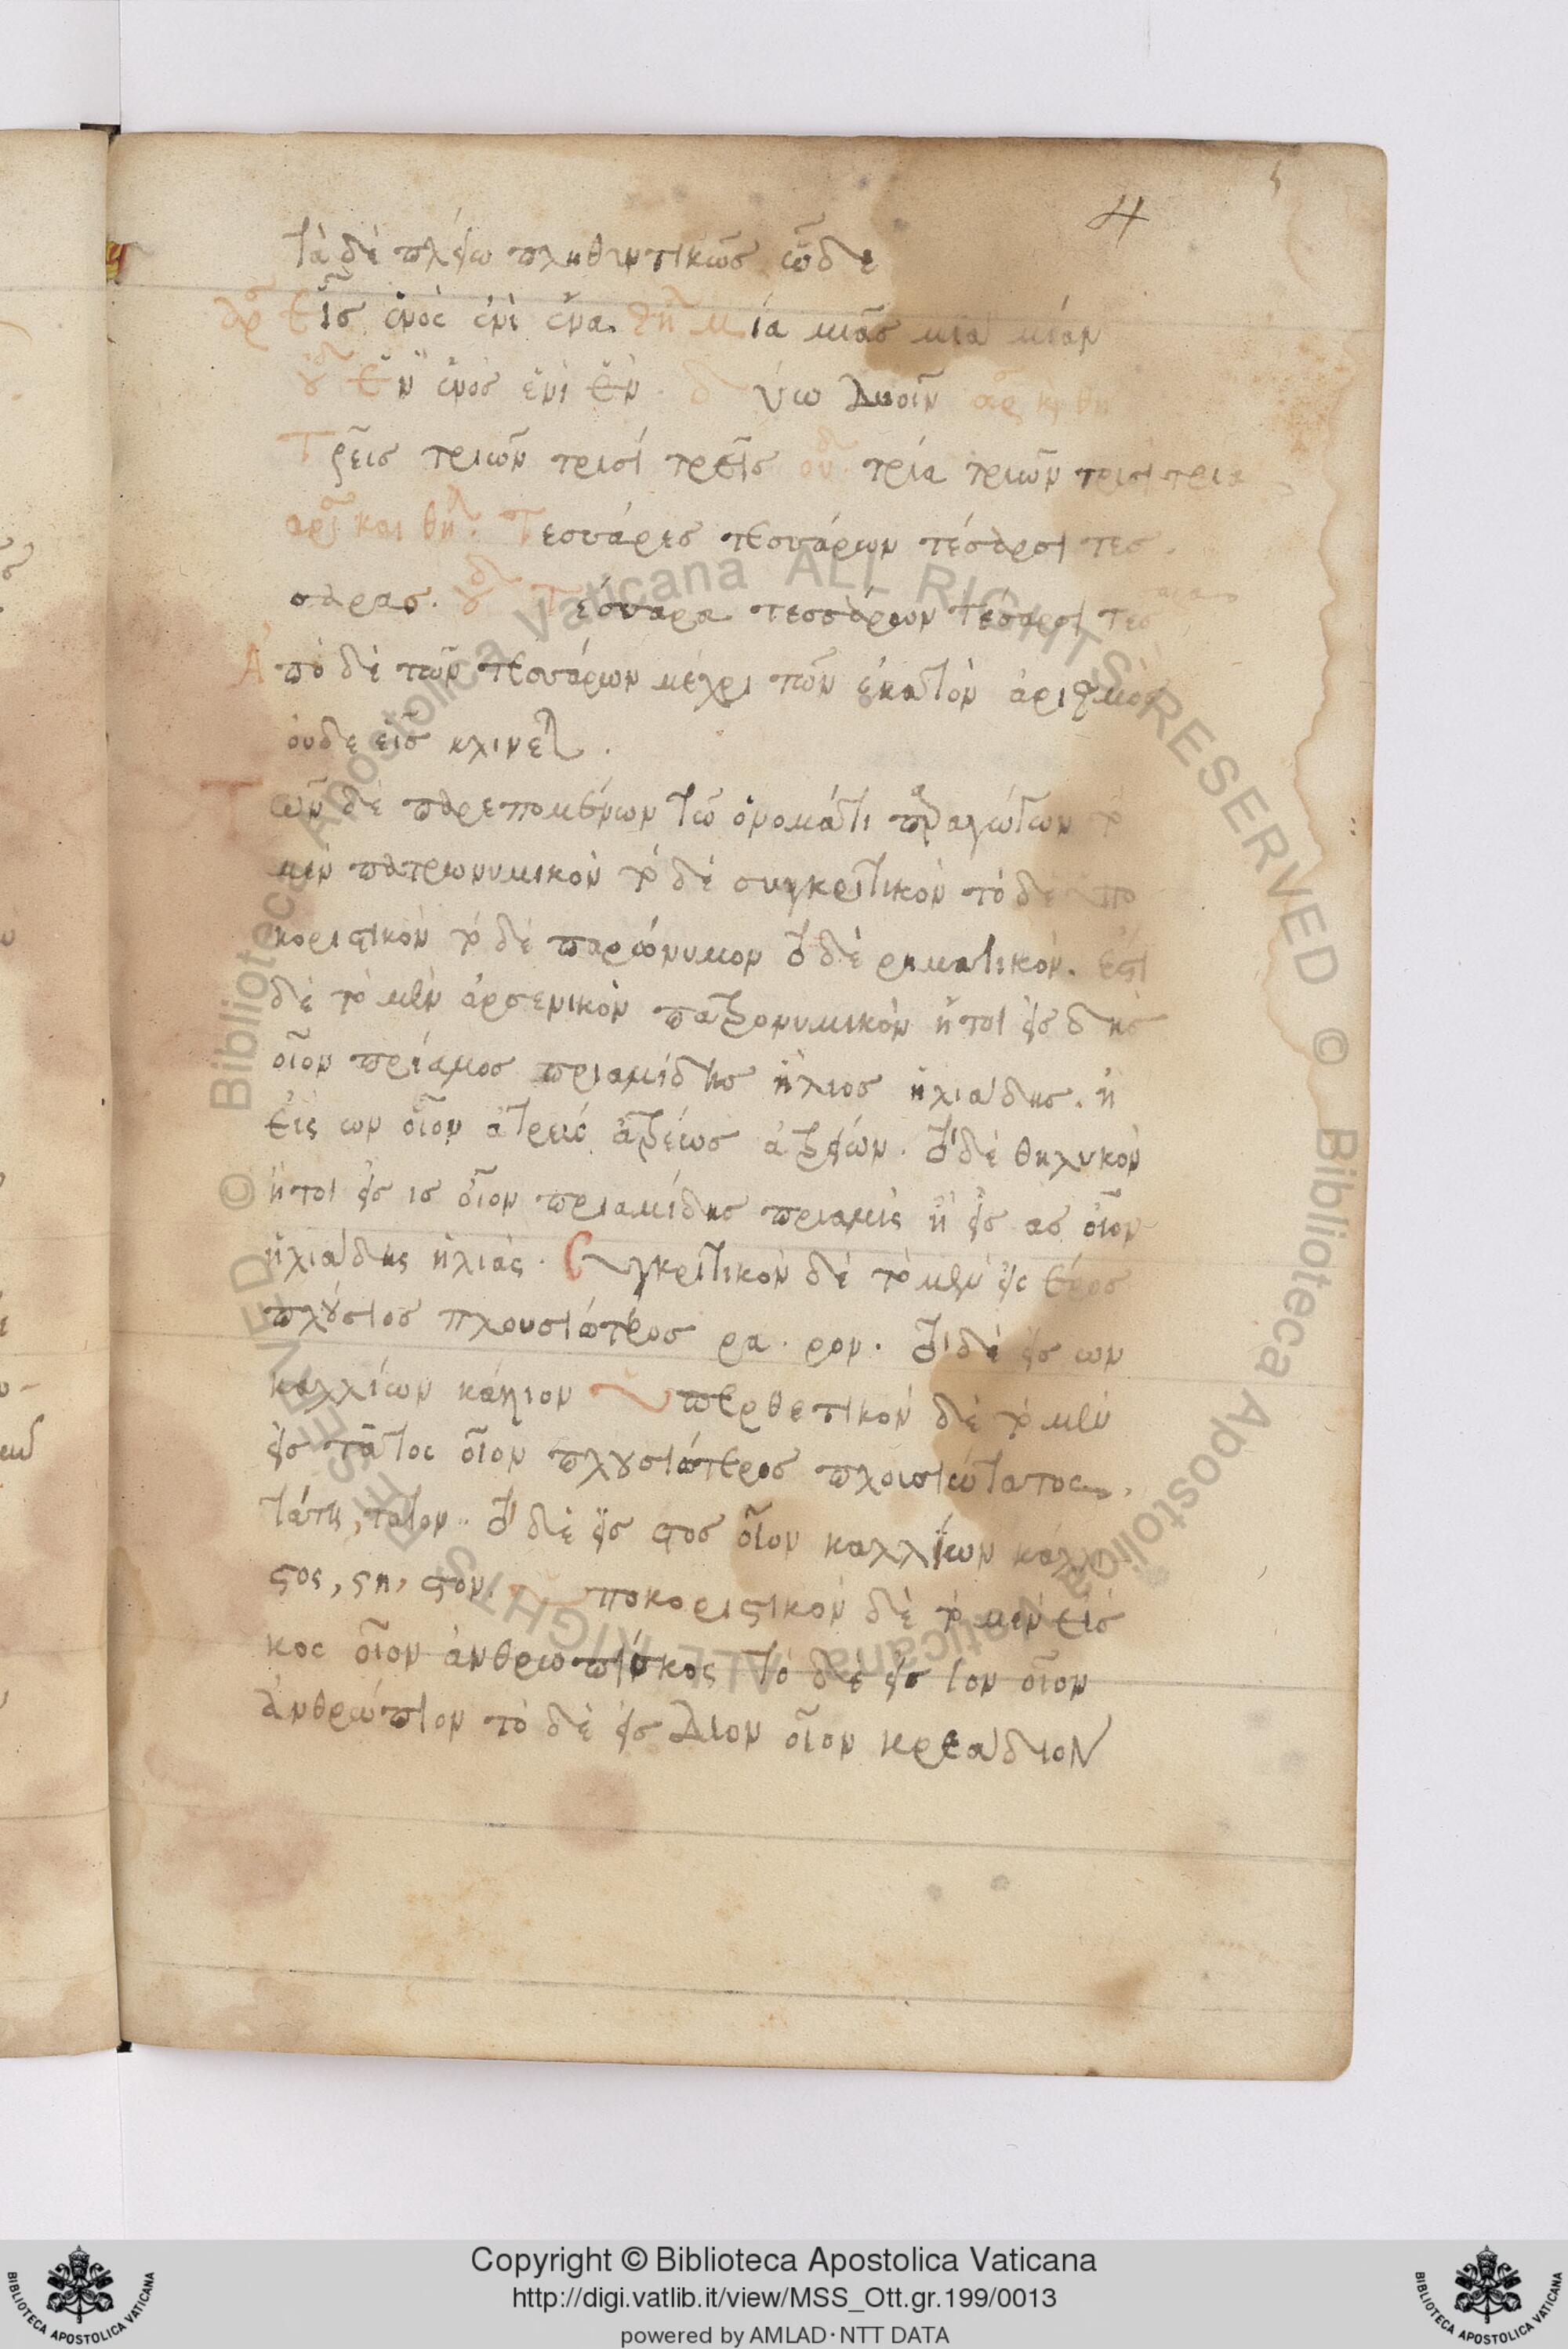 4
τὰ δὲ πλείω πληθυντικῶς ὧδε
ἀρσ Εἷς ἑνὸς ἑνὶ ἕνα. θη μία μιᾶς μιᾶ μίαν
οὐδ Ἓν ἑνὸς ἑνὶ ἓν. δύω δυοῖν ἀρσ κ θη
Τρεῖς τριῶν τρισὶ τρεῖς οὐδ τρία τριῶν τρισὶ τρία
ἀρσ και θηλ. Τεσσάρες τεσσάρων τέσαρσι τεσ
σαρας. οὐδ Τέσσαρα τεσσάρων τέσαρσι τεσ
Ἀπὸ δὲ τῶν τεσσάρων μέχρι τῶν ἑκατὸν ἀριθμὸς
οὐδε εἷς κλινε.
Τῶν δὲ παρεπομένων τῶ ὀνομάτι πραγμάτων τὸ
μεν πατρωνυμικὸν τὸ δὲ συγκριτικὸν τὸ δὲ ὑπο
κοριστικὸν τὸ δὲ παρώνυμον τὸ δὲ ρηματικὸν. Ἐστι
δὲ τὸ μὲν ἀρσενικὸν πατρονυμικὸν ἤτοι εἰς δης
οἷον πρίαμος πριαμίδης ἥλιος ἡλιάδης. ἢ
εἰς ων οἷον ἀτρεὺς ἀτρέως ἀτρείων. τὸ δὲ θηλυκὸν
ἤτοι εἰς ις οἷον πριαμίδης πριαμὶς ἢ εἰς ας οἷον
ἡλιάδης ἡλιὰς. Συγκριτικὸν δὲ τὸ μὲν εἰς ερος
πλούσιος πλουσιώτερος ρα. ρον. τὸ δὲ εἰς ων
καλλίων κάλλιον Ὑπερθετικὸν δὲ τὸ μὲν
εἰς τατος οἷον πλουσιώτερος πλουσιώτατος.
τάτη, τατον. τὸ δὲ εἰς στος οἷον καλλίων κάλλι
στος, στη, στον. Ὑποκοριστικὸν δὲ τὸ μεν εἰς
κος οἷον ἀνθρωπίσκος τὸ δὲ εἰς ιον οἷον
ἀνθρώπιον τὸ δὲ εἰς διον οἷον κρεάδιον
Copyright © Biblioteca Apostolica Vaticana
http://digi.vatlib.it/view/MSS_Ott.gr.199/0013
powered by AMLAD·NTT DATA